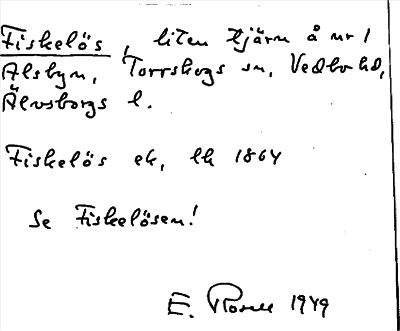 Fiskelös, liten tjärn å nr 1
Alsbyn, Torrskogs sn, Vedbo hd,
Älvsborgs l.
Fiskelös ek, lk 1864
Se Fiskelösen!
E. 1949